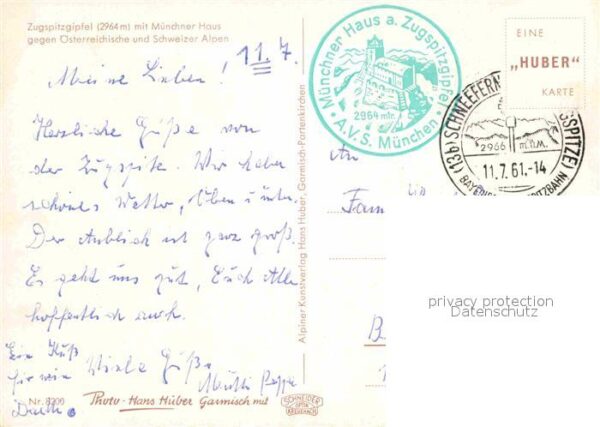 Zugspitzgipfel (2964 m) mit Münchner Haus
gegen Österreichische und Schweizer Alpen
11.7.
Meine Lieben!
Herzliche Grüße von
der Zugspitze. Wir haben
schönes Wetter, Oben u. unten.
Der Anblick ist ganz groß.
Es geht uns gut, Euch Alle
hoffentlich auch.
Viele Grüße
Mutti
Ein Kuß
für
Nr. 8200
Photo-Hans Huber Garmisch mit
SCHNEIDER
OPTIK
KREUZNACH
Alpiner Kunstverlag Hans Huber, Garmisch-Partenkirchen
Münchner Haus a. Zugspitzgipfel
2964 mtr.
A.V.S. München
EINE
„HUBER"
KARTE
(13b) SCHNEEFERN
GSPITZE)
2966 m.ü.M.
11.7.61.-14
An
Fam
B
privacy protection
Datenschutz